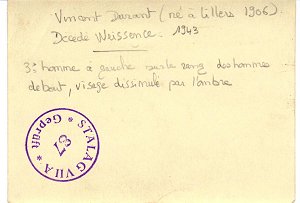 Vincent Durant (né à Lillers 1906).
Décédé Weissence. 1943
3e homme à gauche sur le rang des hommes
debout, visage dissimulé par l'ombre
STALAG VII A * Geprüft *
87